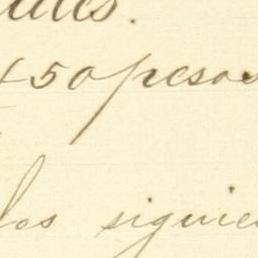 450 pesos
los siguie